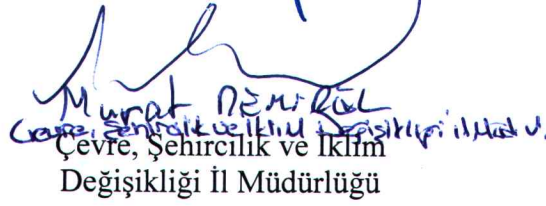 Murat DEMİROL
Çevre, Şehircilik ve İklim Değişikliği il Müd. V.
Çevre, Şehircilik ve İklim
Değişikliği İl Müdürlüğü